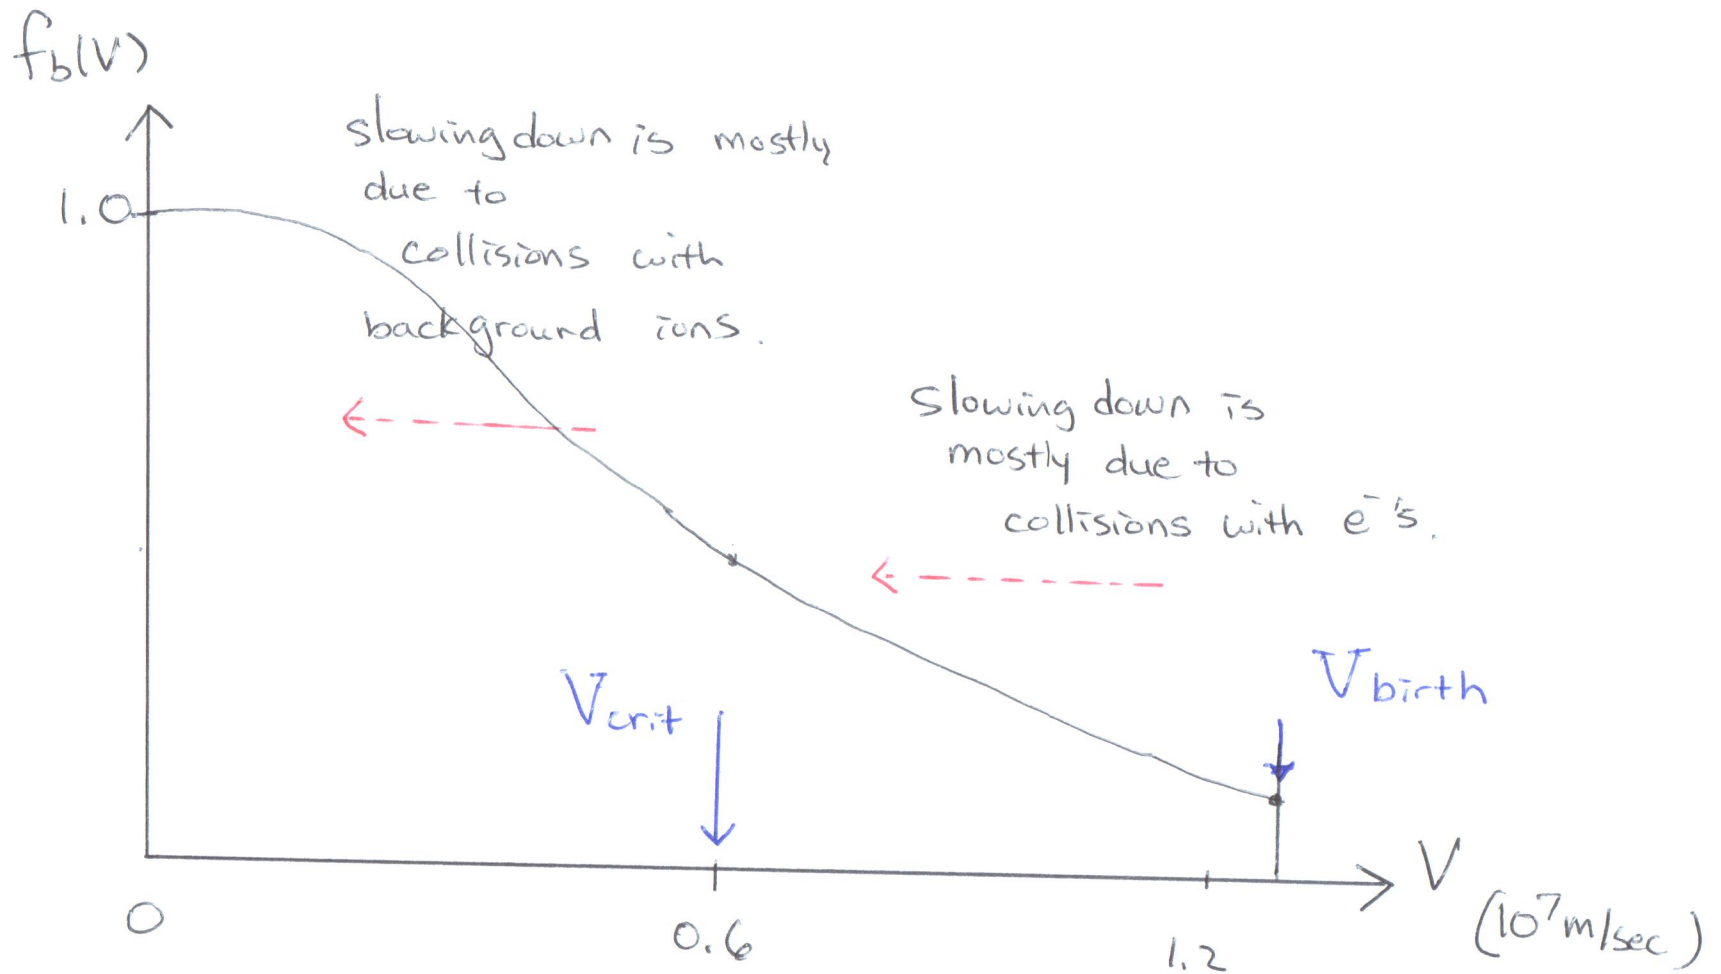 fb(V)
1.0
slowing down is mostly
due to
collisions with
background ions.
Slowing down is
mostly due to
collisions with e⁻'s.
Vcrit
Vbirth
V
(10⁷m/sec)
0
0.6
1.2